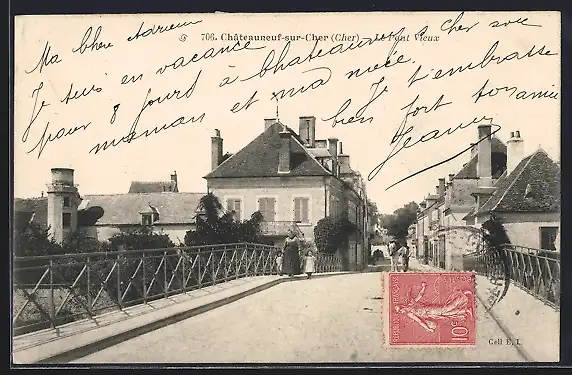 706. Châteauneuf-sur-Cher (Cher) — Le Pont Vieux
Ma chère Adrienne
Je suis en vacance à Chateauneuf s/ Cher avec
pour 8 jours
maman et ma nièce. Je t'embrasse
bien fort ton amie
Jeanne
RÉPUBLIQUE FRANÇAISE
POSTES
10c
Coll E. I.